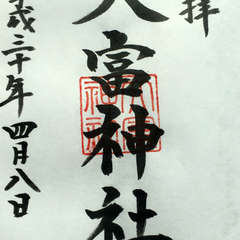 拝
八富神社
平成三十年四月八日